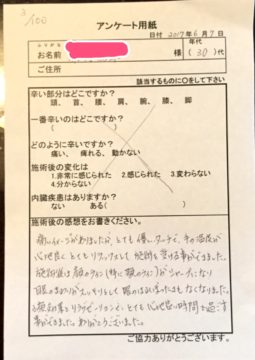 3/100
アンケート用紙
日付 2017年6月7日
ふりがな
お名前
様
年代
(30)代
ご住所
該当するものに○をして下さい
辛い部分はどこですか?
頭、 首、 腰、 肩、 腕、 膝、 脚
一番辛いのはどこですか?
( )
どのように辛いですか?
痛い、 痺れる、 動かない
施術後の変化は
1.非常に感じられた 2.感じられた 3.変わらない
4.分からない
内臓疾患はありますか?
ない ある( )
施術後の感想をお書きください。
痛いイメージがありましたが、とても優しいタッチで、手の温度が
心地良く とてもリラックスして 施術を受ける事ができました。
施術後は 顔のライン(特に頬のライン)がシャープになり
目のまわりがすっきりとして 眼のまわりの重たさもなくなりました。
お顔の事とリラクゼーションと とても心地良い時間を過ごす
事ができました。ありがとうございました。
ご協力ありがとうございます。